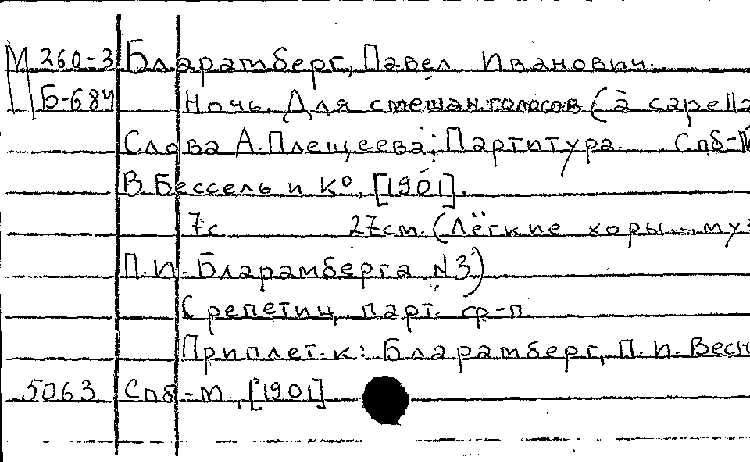 М 260-3 Бларамберг, Павел Иванович.
Б-684 Ночь. Для смешан. голосов (a capella
Слова А. Плещеева. Партитура. Спб-М
В. Бессель и К°, [1901].
7с. 27см. (Лёгкие хоры... муз
П.И. Бларамберга N3)
С репетиц. парт. ф-п.
Приплет. к: Бларамберг, П.И. Весн
5063 Спб-М, [1901]